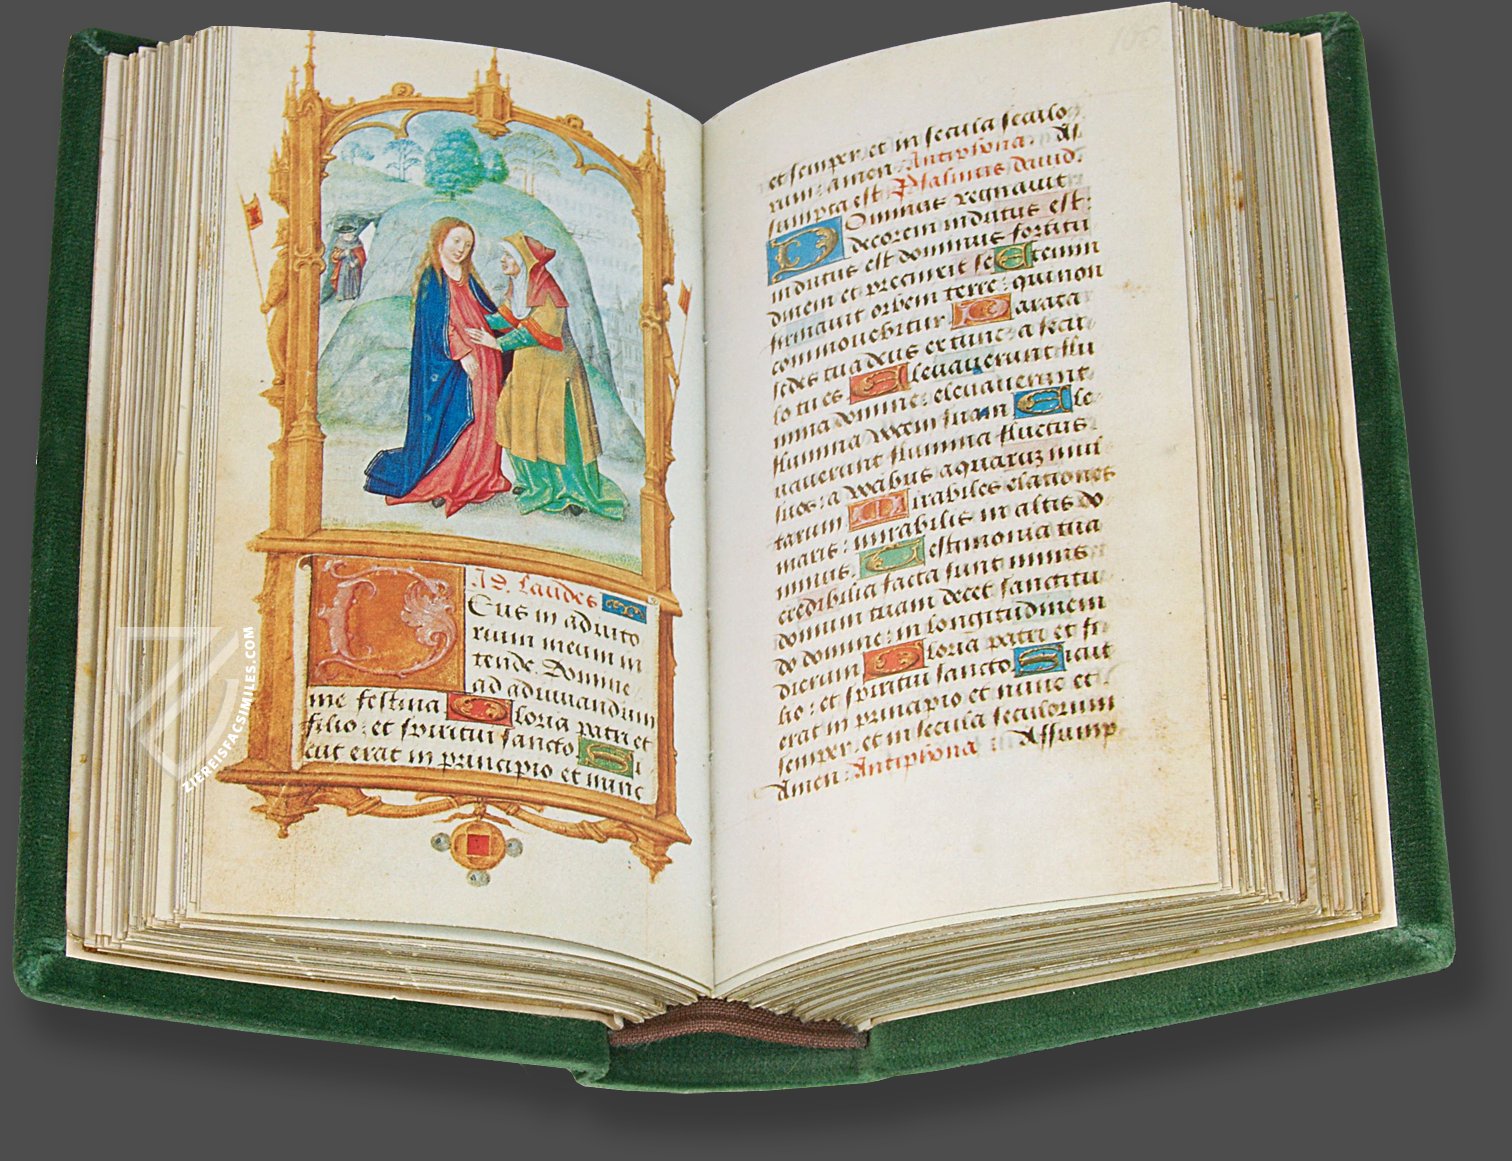 Ad Laudes
Deus in adiuto
rium meum in
tende. Domine
ad adiuvandum
me festina Gloria patri et
filio: et spiritui sancto Si
cut erat in principio et nunc
ZIEREISFACSIMILES.COM
105
et semper, et in secula seculo
rum: amen. Antiphona. As
sumpta est Psalmus david.
Dominus regnavit
decorem indutus est:
indutus est dominus fortitu
dinem et precinxit se Etenim
firmavit orbem terre: qui non
commovebitur Parata
sedes tua deus ex tunc: a secu
lo tu es Elevaverunt flu
mina domine: elevaverunt
flumina vocem suam Ele
vaverunt flumina fluctus
suos: a vocibus aquarum mul
tarum Mirabiles elationes
maris: mirabilis in altis do
minus. Testimonia tua
credibilia facta sunt nimis
domum tuam decet sanctitu
do domine: in longitudinem
dierum Gloria patri et fi
lio: et spiritui sancto Sicut
erat in principio et nunc et
semper, et in secula seculorum
Amen: Antiphona Assump